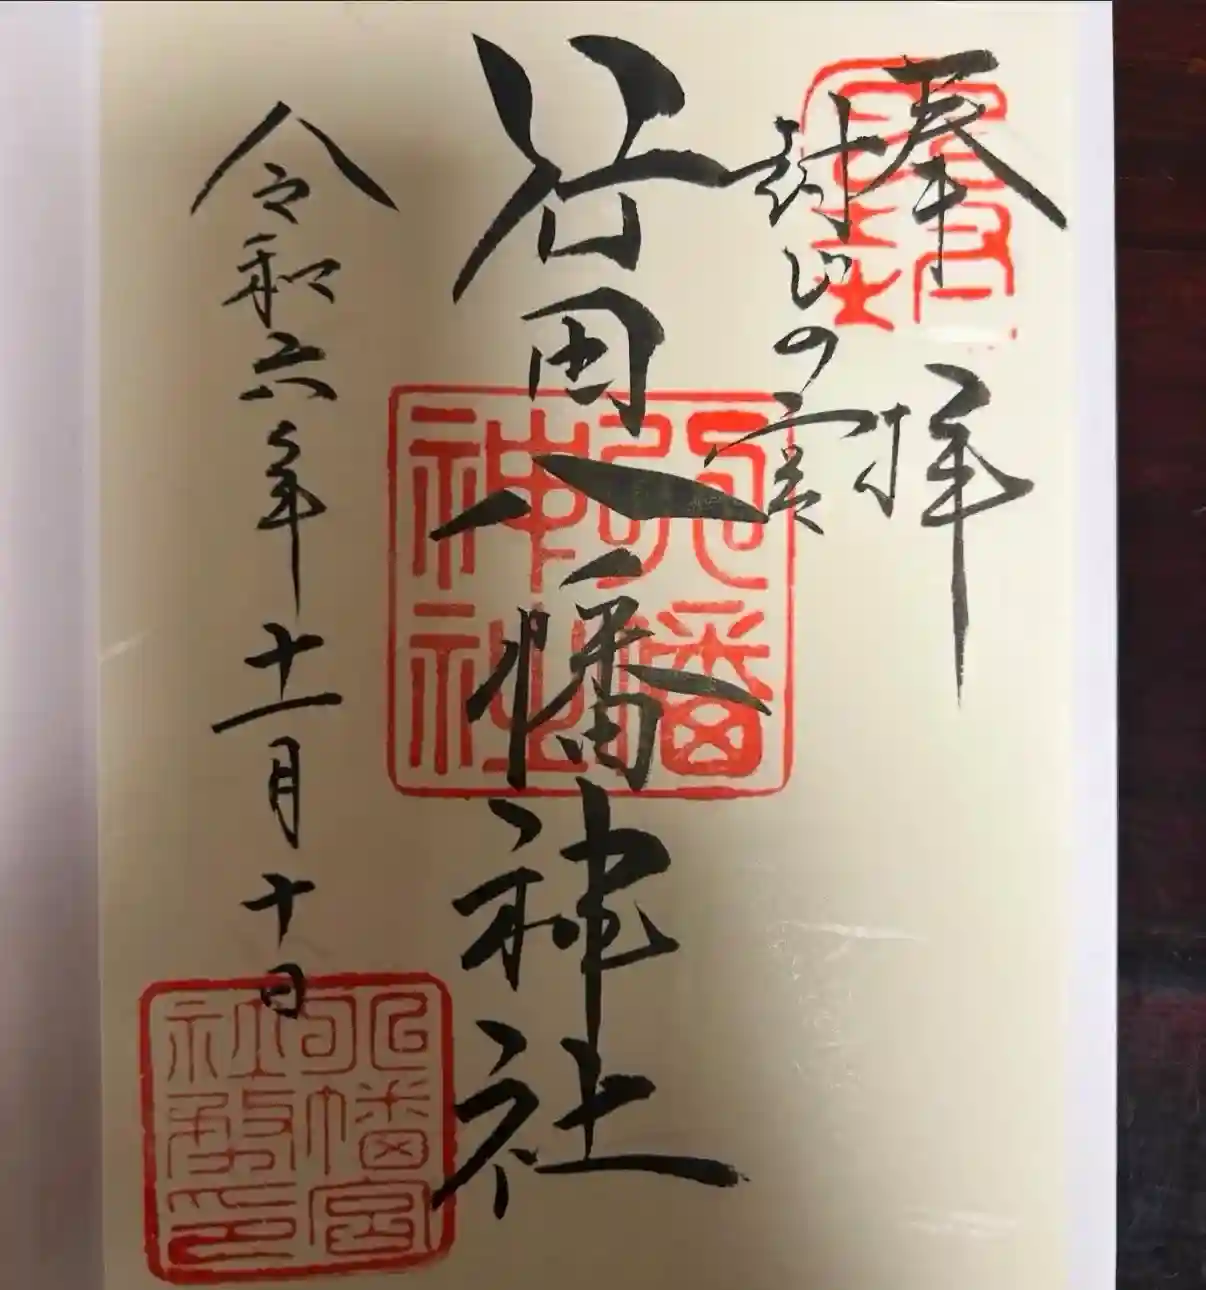 奉拝
封じの宮
谷田八幡神社
令和六年十一月十日
八幡神社
八幡宮社務印